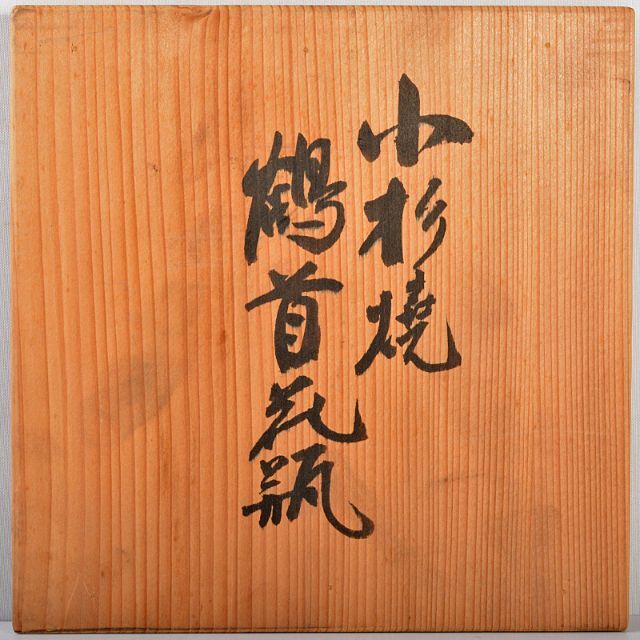 小杉燒
鶴首花瓶